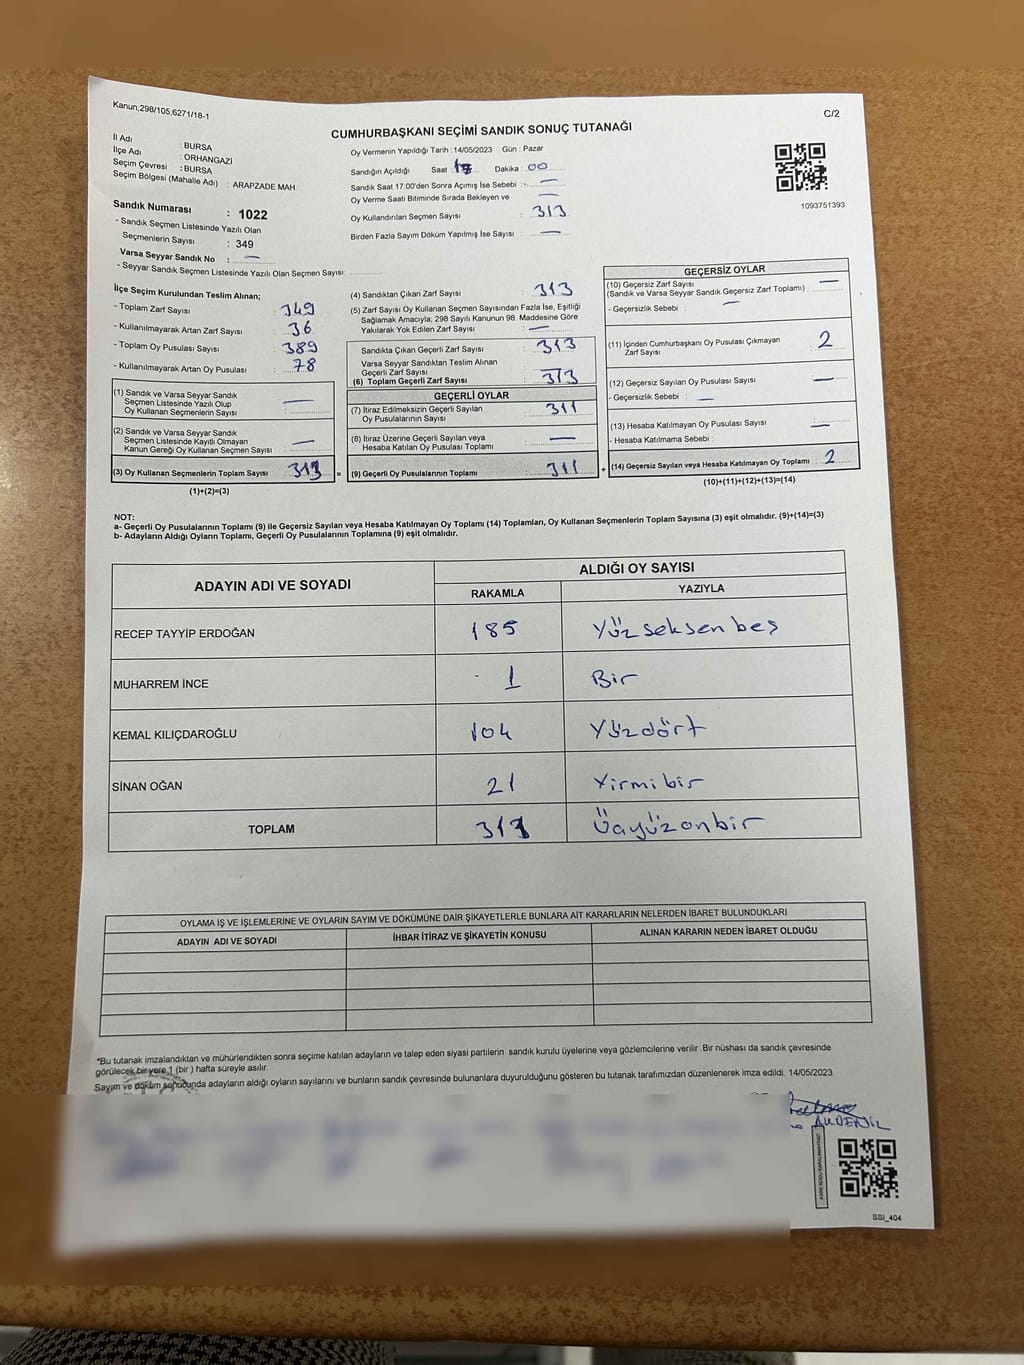 Kanun;298/105,6271/18-1
C/2
CUMHURBAŞKANI SEÇİMİ SANDIK SONUÇ TUTANAĞI
İl Adı : BURSA
İlçe Adı : ORHANGAZİ
Seçim Çevresi : BURSA
Seçim Bölgesi (Mahalle Adı) : ARAPZADE MAH.
Sandık Numarası : 1022
- Sandık Seçmen Listesinde Yazılı Olan
Seçmenlerin Sayısı : 349
Varsa Seyyar Sandık No : —
- Seyyar Sandık Seçmen Listesinde Yazılı Olan Seçmen Sayısı:
Oy Vermenin Yapıldığı Tarih : 14/05/2023 Gün : Pazar
Sandığın Açıldığı Saat : Dakika : 00
Sandık Saat 17:00'den Sonra Açımış İse Sebebi : —
Oy Verme Saati Bitiminde Sırada Bekleyen ve —
Oy Kullandırılan Seçmen Sayısı : 313
Birden Fazla Sayım Döküm Yapılmış İse Sayısı : —
1093751393
İlçe Seçim Kurulundan Teslim Alınan;
- Toplam Zarf Sayısı : 349
- Kullanılmayarak Artan Zarf Sayısı : 36
- Toplam Oy Pusulası Sayısı : 389
- Kullanılmayarak Artan Oy Pusulası : 78
(1) Sandık ve Varsa Seyyar Sandık
Seçmen Listesinde Yazılı Olup
Oy Kullanan Seçmenlerin Sayısı : —
(2) Sandık ve Varsa Seyyar Sandık
Seçmen Listesinde Kayıtlı Olmayan
Kanun Gereği Oy Kullanan Seçmen Sayısı : —
(3) Oy Kullanan Seçmenlerin Toplam Sayısı : 313 =
(1)+(2)=(3)
(4) Sandıktan Çıkan Zarf Sayısı : 313
(5) Zarf Sayısı Oy Kullanan Seçmen Sayısından Fazla İse, Eşitliği
Sağlamak Amacıyla; 298 Sayılı Kanunun 98. Maddesine Göre
Yakılarak Yok Edilen Zarf Sayısı : —
Sandıkta Çıkan Geçerli Zarf Sayısı : 313
Varsa Seyyar Sandıktan Teslim Alınan
Geçerli Zarf Sayısı : —
(6) Toplam Geçerli Zarf Sayısı : 313
GEÇERLİ OYLAR
(7) İtiraz Edilmeksizin Geçerli Sayılan
Oy Pusulalarının Sayısı : 311
(8) İtiraz Üzerine Geçerli Sayılan veya
Hesaba Katılan Oy Pusulası Toplamı : —
(9) Geçerli Oy Pusulalarının Toplamı : 311 +
GEÇERSİZ OYLAR
(10) Geçersiz Zarf Sayısı : —
(Sandık ve Varsa Seyyar Sandık Geçersiz Zarf Toplamı)
- Geçersizlik Sebebi : —
(11) İçinden Cumhurbaşkanı Oy Pusulası Çıkmayan
Zarf Sayısı : 2
(12) Geçersiz Sayılan Oy Pusulası Sayısı : —
- Geçersizlik Sebebi : —
(13) Hesaba Katılmayan Oy Pusulası Sayısı : —
- Hesaba Katılmama Sebebi :
(14) Geçersiz Sayılan veya Hesaba Katılmayan Oy Toplamı : 2
(10)+(11)+(12)+(13)=(14)
NOT:
a- Geçerli Oy Pusulalarının Toplamı (9) ile Geçersiz Sayılan veya Hesaba Katılmayan Oy Toplamı (14) Toplamları, Oy Kullanan Seçmenlerin Toplam Sayısına (3) eşit olmalıdır. (9)+(14)=(3)
b- Adayların Aldığı Oyların Toplamı, Geçerli Oy Pusulalarının Toplamına (9) eşit olmalıdır.
ADAYIN ADI VE SOYADI
ALDIĞI OY SAYISI
RAKAMLA YAZIYLA
RECEP TAYYİP ERDOĞAN 185 Yüz seksen beş
MUHARREM İNCE 1 Bir
KEMAL KILIÇDAROĞLU 104 Yüzdört
SİNAN OĞAN 21 Yirmi bir
TOPLAM 311 Üçyüzonbir
OYLAMA İŞ VE İŞLEMLERİNE VE OYLARIN SAYIM VE DÖKÜMÜNE DAİR ŞİKAYETLERLE BUNLARA AİT KARARLARIN NELERDEN İBARET BULUNDUKLARI
ADAYIN ADI VE SOYADI İHBAR İTİRAZ VE ŞİKAYETİN KONUSU ALINAN KARARIN NEDEN İBARET OLDUĞU
*Bu tutanak imzalandıktan ve mühürlendikten sonra seçime katılan adayların ve talep eden siyasi partilerin sandık kurulu üyelerine veya gözlemcilerine verilir. Bir nüshası da sandık çevresinde
görülecek bir yere 1 (bir) hafta süreyle asılır.
Sayım ve döküm sonucunda adayların aldığı oyların sayılarını ve bunların sandık çevresinde bulunanlara duyurulduğunu gösteren bu tutanak tarafımızdan düzenlenerek imza edildi. 14/05/2023
SSİ_404